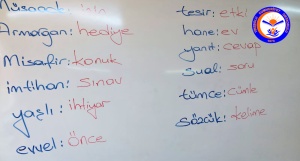 Armağan: hediye
Misafir: konuk
imtihan: Sınav
yaşlı: ihtiyar
evvel: Önce
tesir: etki
hane: ev
yanıt: cevap
sual: soru
tümce: Cümle
sözcük: kelime